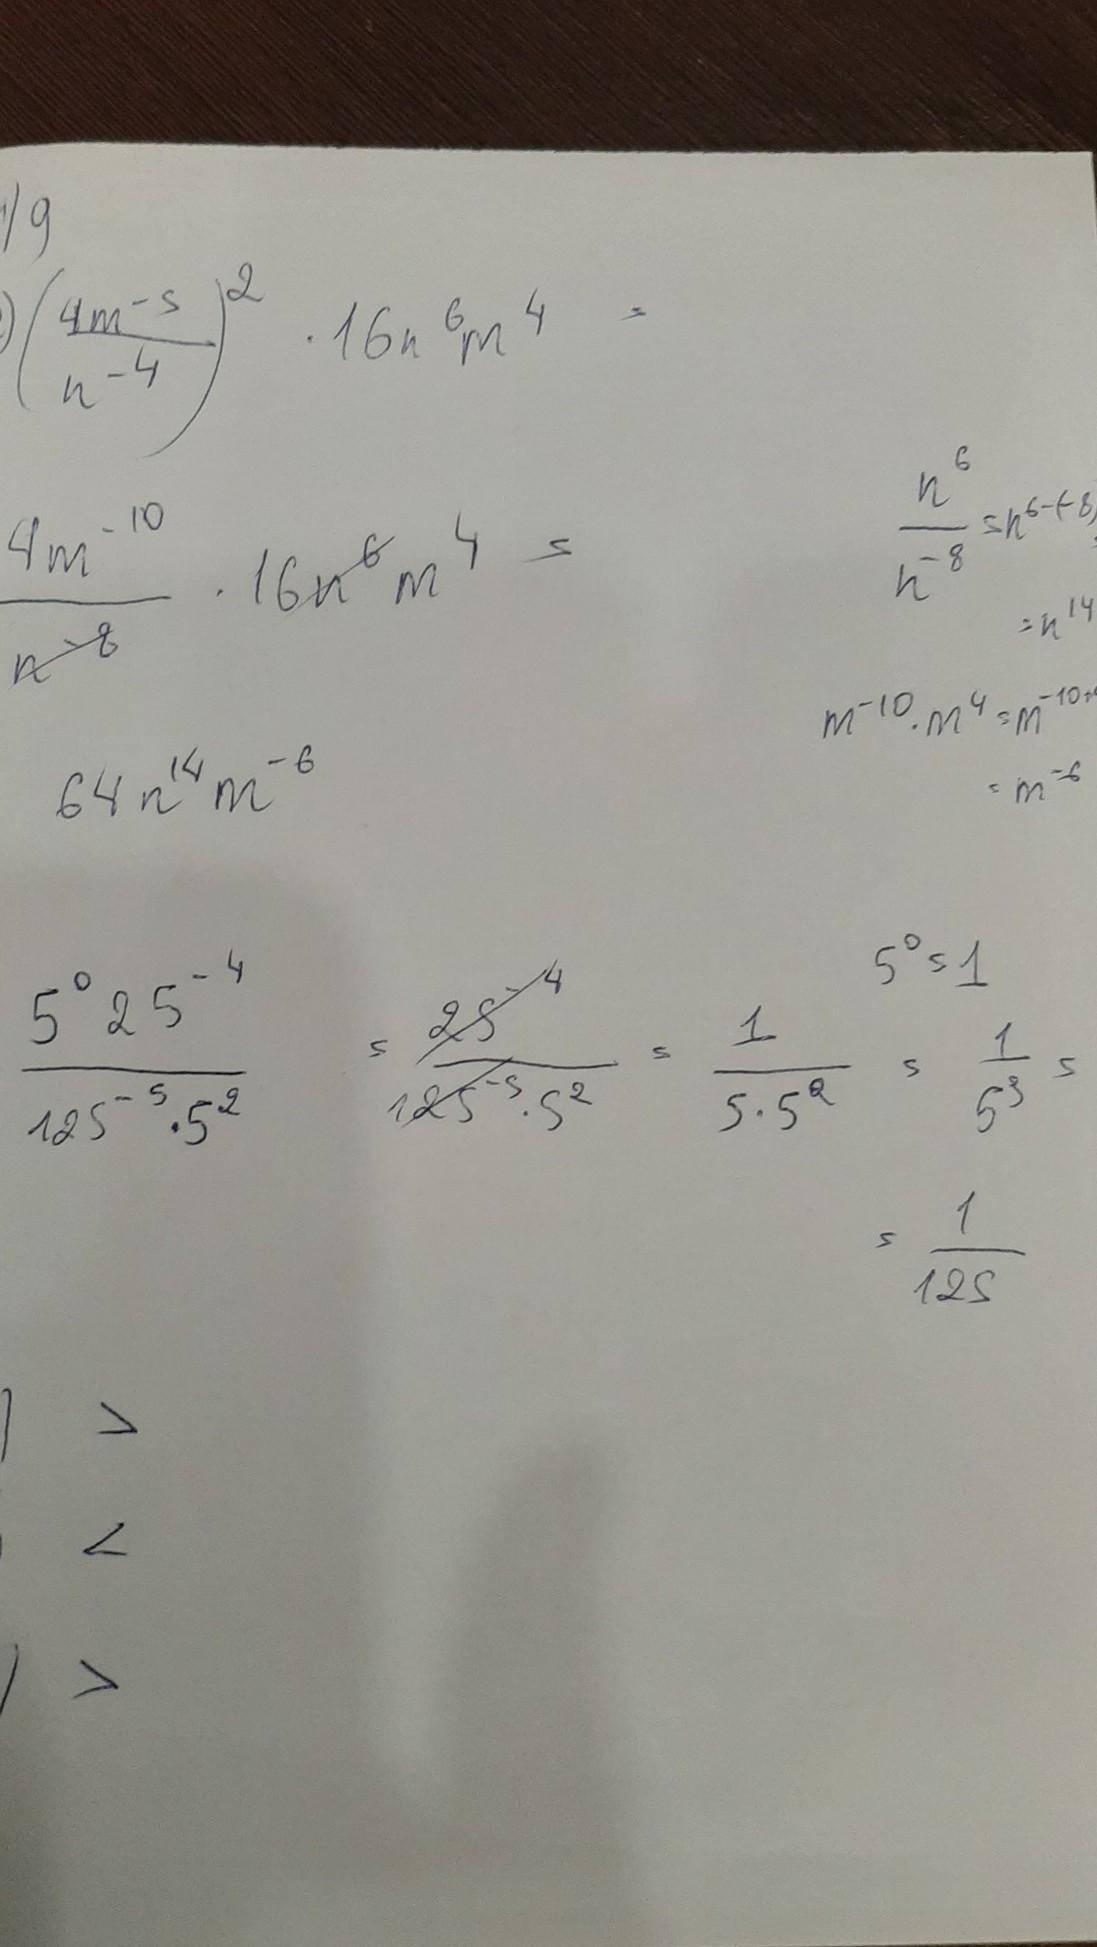 1/9
(4m⁻⁵/n⁻⁴)² · 16n⁶m⁴ =
4m⁻¹⁰/n⁻⁸ · 16n⁶m⁴ =
n⁶/n⁻⁸ = n⁶⁻⁽⁻⁸⁾
= n¹⁴
m⁻¹⁰ · m⁴ = m⁻¹⁰⁺
= m⁻⁶
64n¹⁴m⁻⁶
5⁰ = 1
5⁰25⁻⁴/125⁻⁵·5² = 25⁻⁴/125⁻⁵·5² = 1/5·5² = 1/5³ =
= 1/125
) >
<
) >